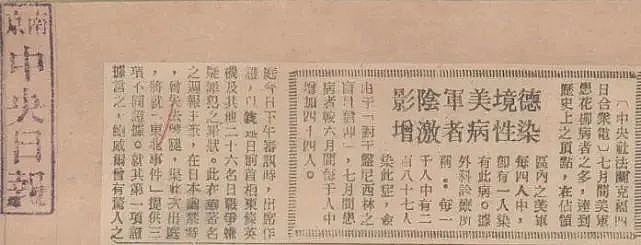 南京
中央日報
德境美軍陰影
染性病者激增
〔中央社法蘭克福四
日合眾電〕七月間美軍
患花柳病者之多，達到
歷史上之頂點，在佔領
區內之美軍
每四人中，
卽有一人染
有此病。據
外科診療所
稱：每一
千人中有二
百八十七人
染此症，
由於「對于盤尼西林之
盲目信仰」，七月間患
病者較六月間每千人中
增加四十四人。
庭今日下午審訊時，出席作
證，以 明日前首相東條英
機及其他二十六名日戰爭
疑罪犯之罪狀。此 著名
之週報主筆，在日本幽禁時
，曾失去雙腿，渠此次出庭
，將就「東北事件」提供三
項不同證據。就其第一項證
據言之，鮑威爾曾有驚人之